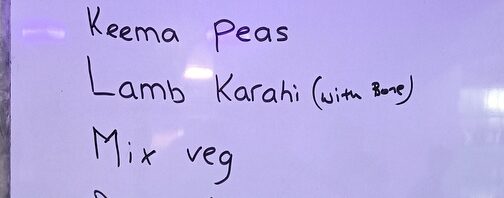 Keema Peas
Lamb Karahi (with Bone)
Mix veg